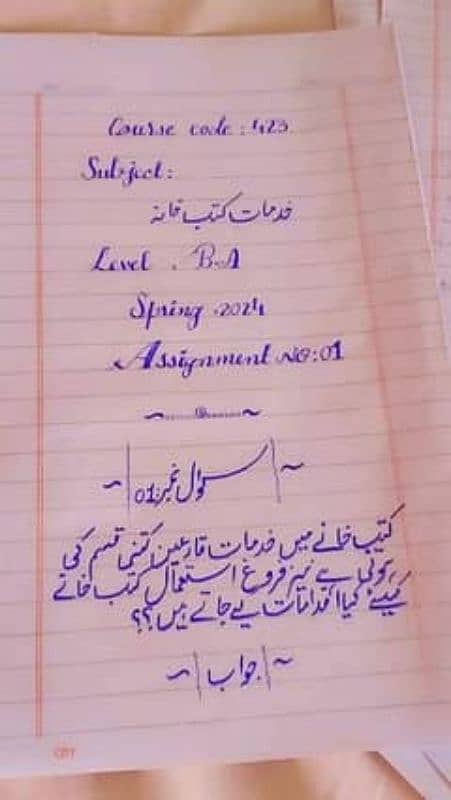 Course code : 423
Subject :
خدمات کتب خانہ
Level . B.A
Spring .2024
Assignment NO:01
سوال نمبر:01
کتب خانے میں خدمات قارئین کتنی قسم کی
ہوتی ہے نیز فروغ استعمال کتب خانے
کیلئے کیا اقدامات کیے جاتے ہیں؟؟
جواب